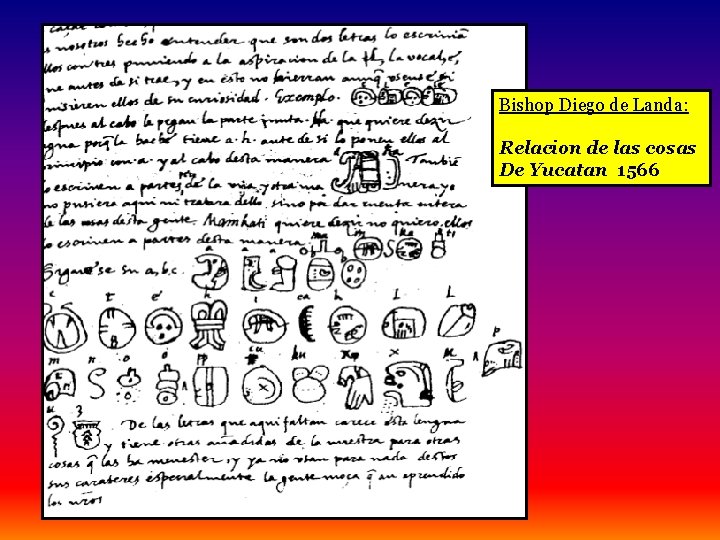 a nosotros hecho entender que son dos letras lo escrivian
ellos con tres puniendo a la aspiracion de la h, la vocal, e,
que antes de si trae, y en esto no hierran aunq̃ osense
quisieren ellos de su curiosidad. Exemplo.
despues al cabo le pegan la parte junta. Ha que quiere dezir
agua porq̃ la haché tiene a. h. ante de si lo ponen ellos al
principio con a. y al cabo desta manera Tambiẽ
lo escriven a partes de la una y otra ma nera yo
no pusiera aqui ni tratara dello, sino por dar cuenta entera
de las cosas desta gente. Mainkati quiere dezir no quiero, ellos
lo escriven a partes desta manera
ma i n ka ti
Siguese su a, b, c.
a a a b b
c t e h i ca k l l
m n o o pp cu ku x x u p
u z
De las letras que aqui faltan carece esta lengua
y tiene otras añadidas de la nuestra para otras
cosas q̃ las ha menester, y ya no usan para nada destos
sus carateres especialmente la gente moça q̃ an aprendido
los nr̃os
Bishop Diego de Landa:
Relacion de las cosas
De Yucatan 1566